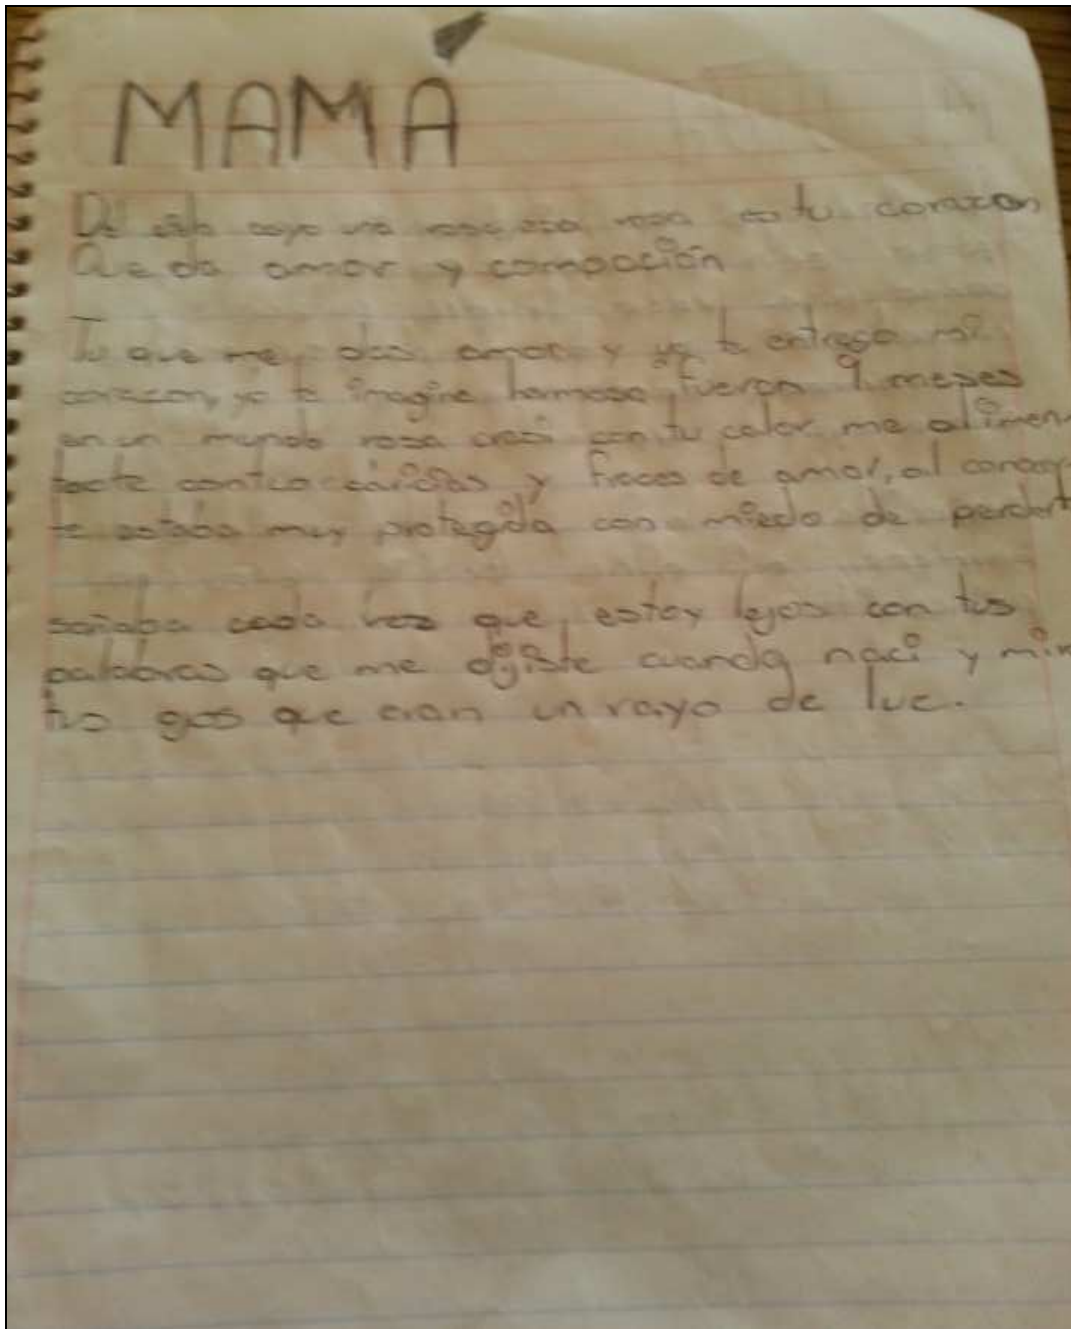 MAMÁ
Del cayo una rosa esa rosa es tu corazon
Que da amor y
Tu que me das amor y yo te entrego mi
corazon, yo te imagine hermosa, fueron 9 meses
en un mundo rosa creci con tu calor me alimen
y fraces de amor, al conocer
te estaba muy protegida con miedo de perderte
soñaba cada vez que estoy lejos con tus
palabras que me dijiste cuando naci y
tus ojos que eran un rayo de luz.